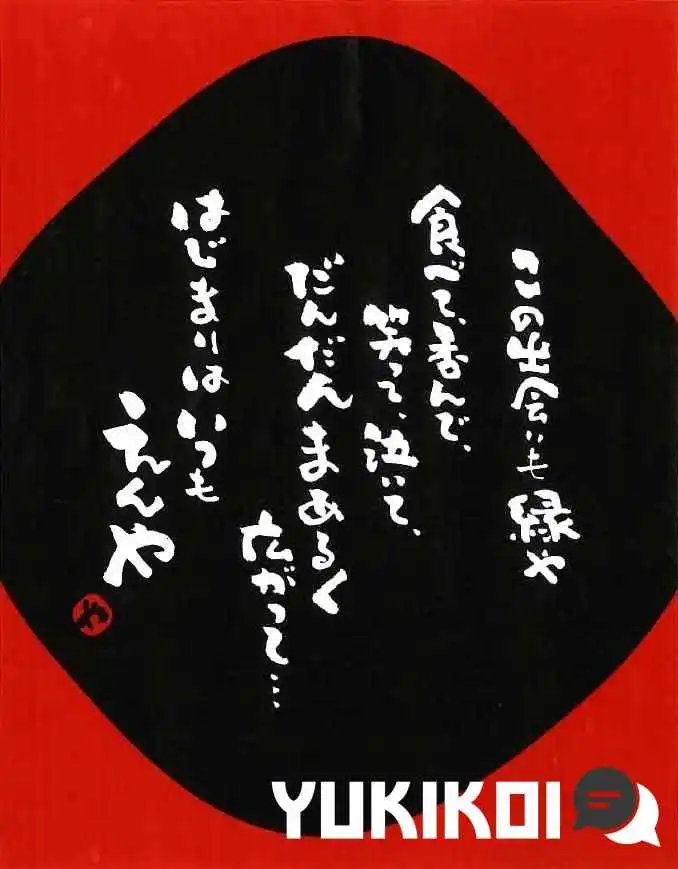 この出会いも縁や
食べて、呑んで、
笑って、泣いて、
だんだんまあるく
広がって…
はじまりはいつも
えんや
や
YUKIKOI